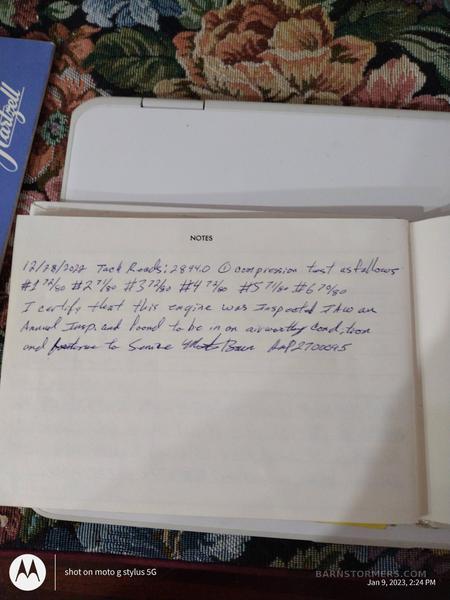 Hartzell
NOTES
12/28/2022 Tach Reads: 2894.0 ① compression test as follows
#1 72/80 #2 71/80 #3 72/80 #4 72/80 #5 71/80 #6 70/80
I certify that this engine was Inspected IAW an
Annual Insp. and found to be in an airworthy condition
and to Service A&P
shot on moto g stylus 5G
BARNSTORMERS.COM
Jan 9, 2023, 2:24 PM